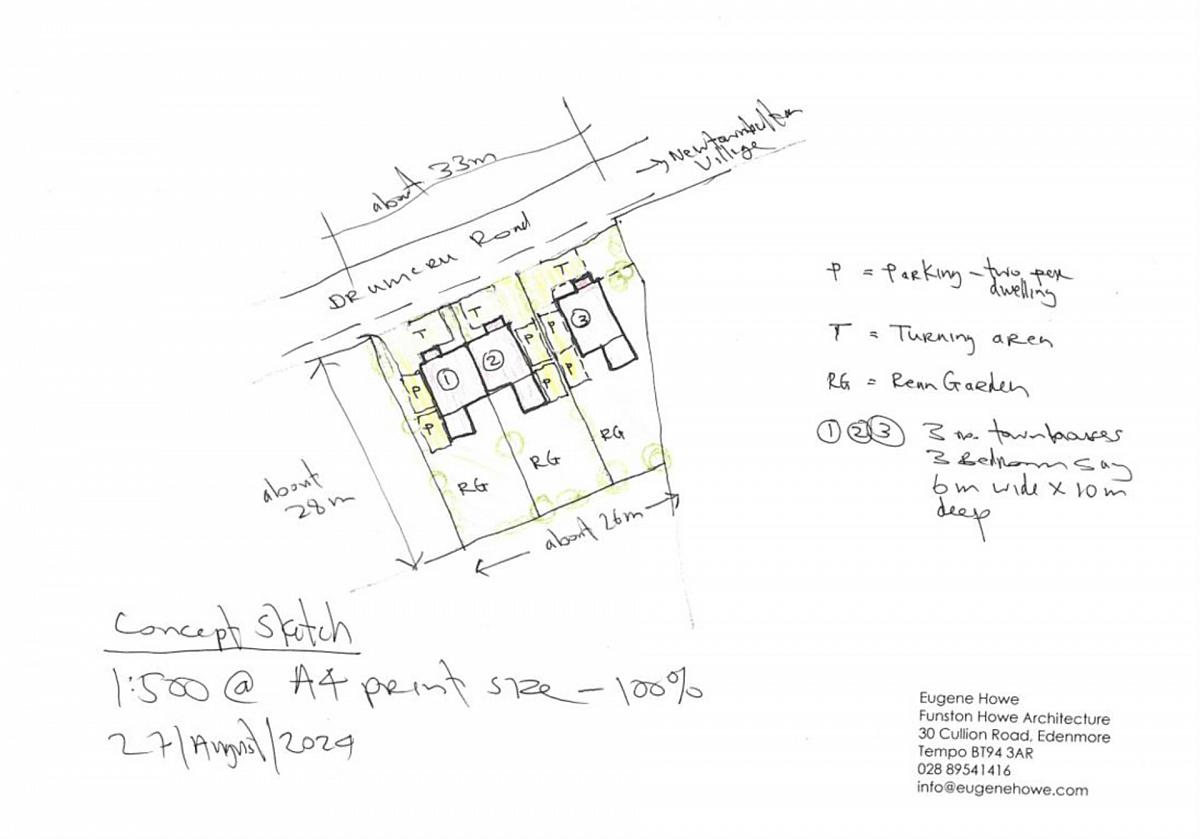 about 33m
→ Newtownbutler
Village
Drumcru Road
T
T
T
3
P
P
2
1
P
P
P
P
RG
RG
RG
about
28m
about 26m
P = Parking - two per
dwelling
T = Turning area
RG = Rear Garden
1 2 3 3 no. townhouses
3 Bedroom say
6m wide x 10m
deep
Concept Sketch
1:500 @ A4 print size - 100%
27/August/2024
Eugene Howe
Funston Howe Architecture
30 Cullion Road, Edenmore
Tempo BT94 3AR
028 89541416
info@eugenehowe.com